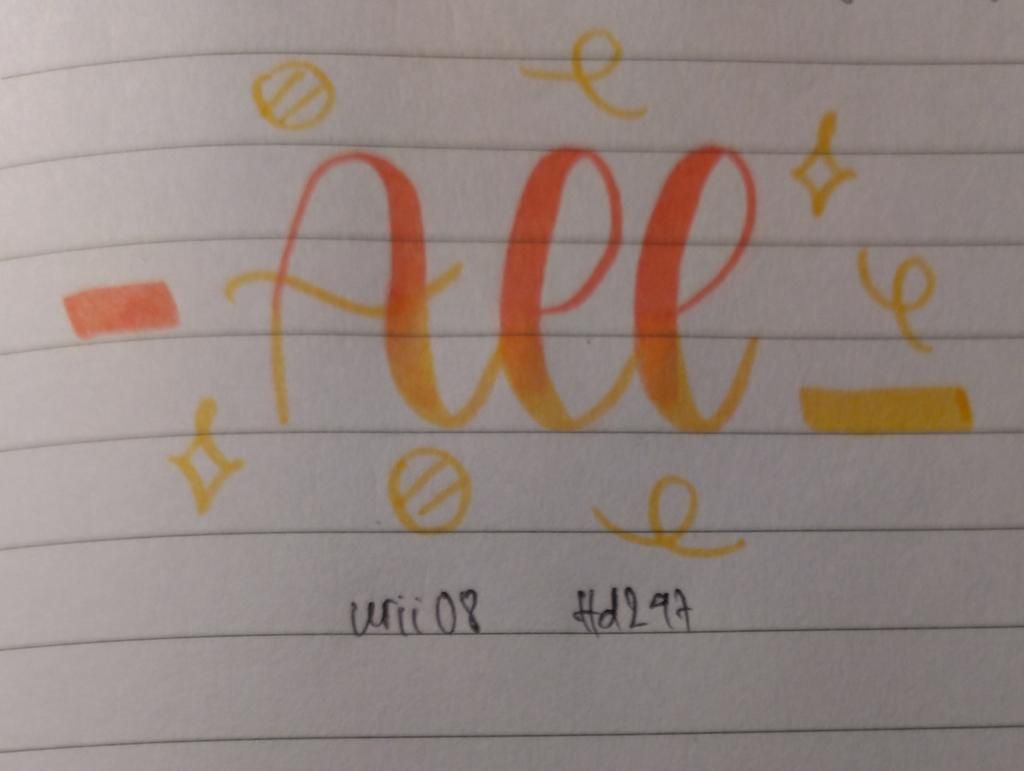 All
urii08 Hd297